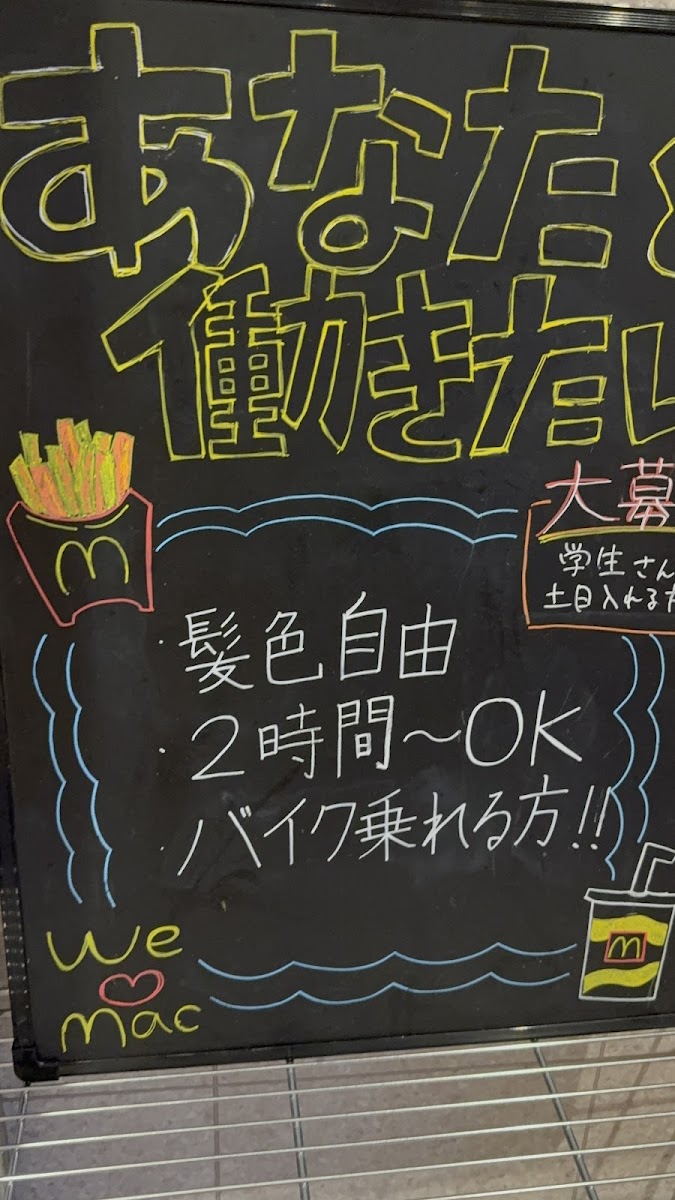 あなた
働きたい
大募
学生さん
土日入れる
・髪色自由
・２時間～OK
・バイク乗れる方!!
We
♡
mac
m
m